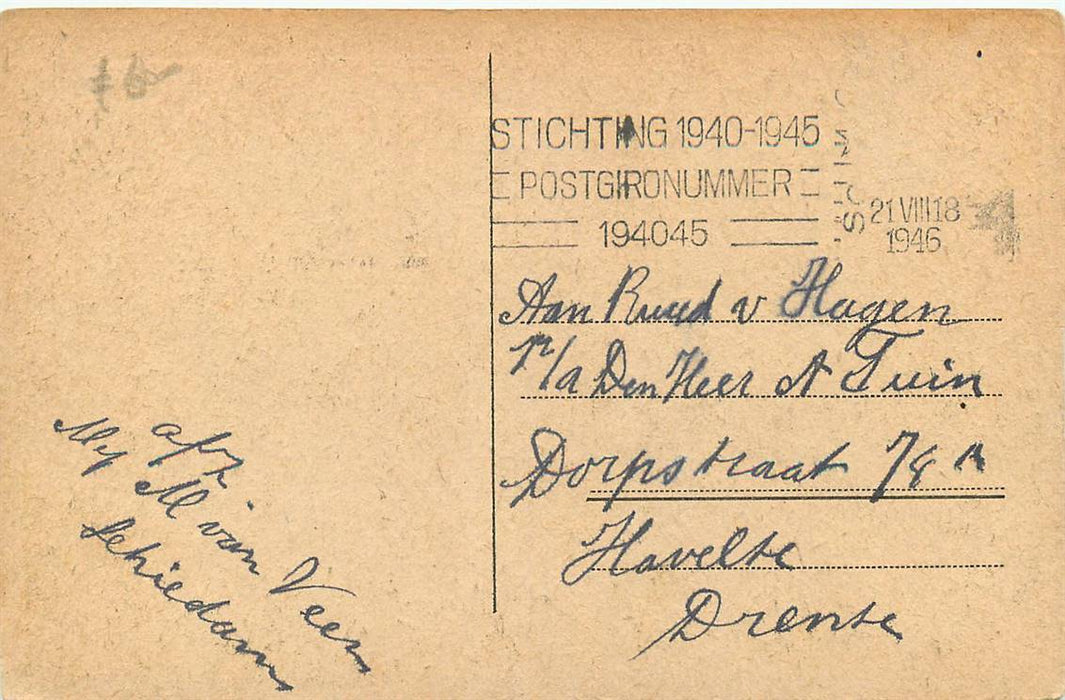 STICHTING 1940-1945
POSTGIRONUMMER
194045
21 VIII 18
1946
Aan Ruud v Hagen
p/a Den Heer A Tuin
Dorpstraat 78 A
Havelte
Drente
afz
Mej M van Veen
Schiedam